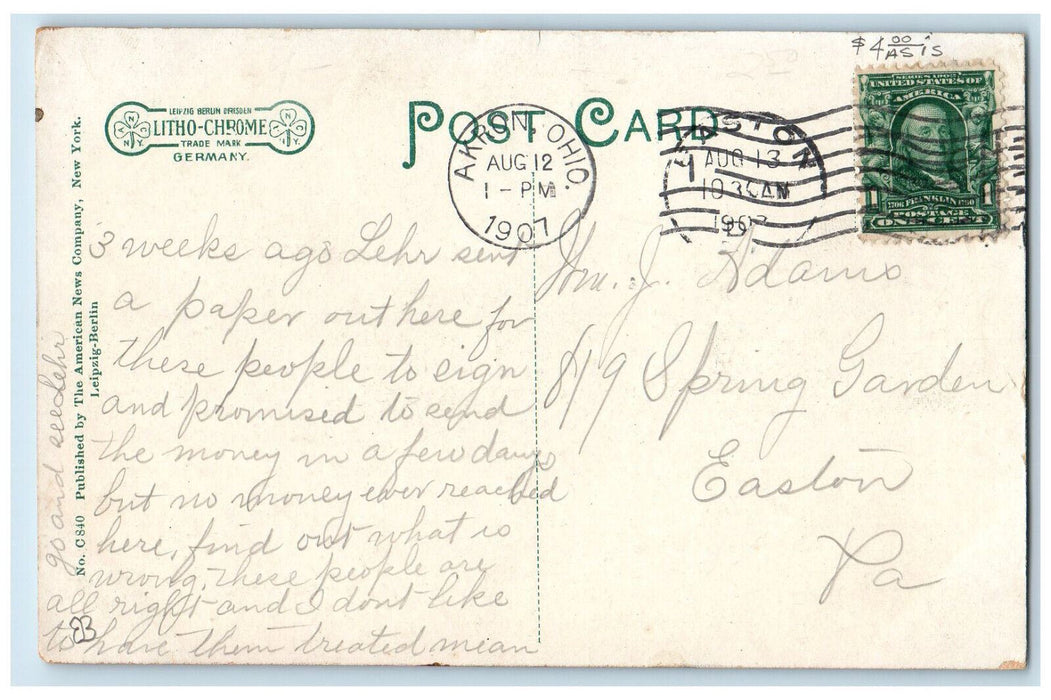 $4 00 AS iS
LEIPZIG BERLIN DRESDEN
LITHO-CHROME
TRADE MARK
GERMANY.
A N C N.Y.
A N C N.Y.
POST CARD
AKRON, OHIO.
AUG 12
1 - PM
1907
EASTON
AUG 13
10 30 AM
SERIES 1902
UNITED STATES OF
AMERICA
1 1
1706 FRANKLIN 1790
POSTAGE
ONE CENT
No. C 840 Published by The American News Company, New York.
Leipzig-Berlin
3 weeks ago Lehr sent
a paper out here for
these people to sign
and promised to send
the money in a few days
but no money ever reached
here, find out what is
wrong, these people are
all right and I dont like
to have them treated mean
go and see Lehr
Wm. J. Adams
819 Spring Garden
Easton
Pa